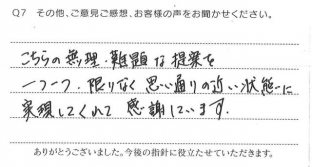 Q7 その他、ご意見ご感想、お客様の声をお聞かせください。
こちらの無理・難題な提案を
一つ一つ、限りなく思い通りの近い状態に
実現してくれて感謝しています。
ありがとうございました。今後の指針に役立たせていただきます。